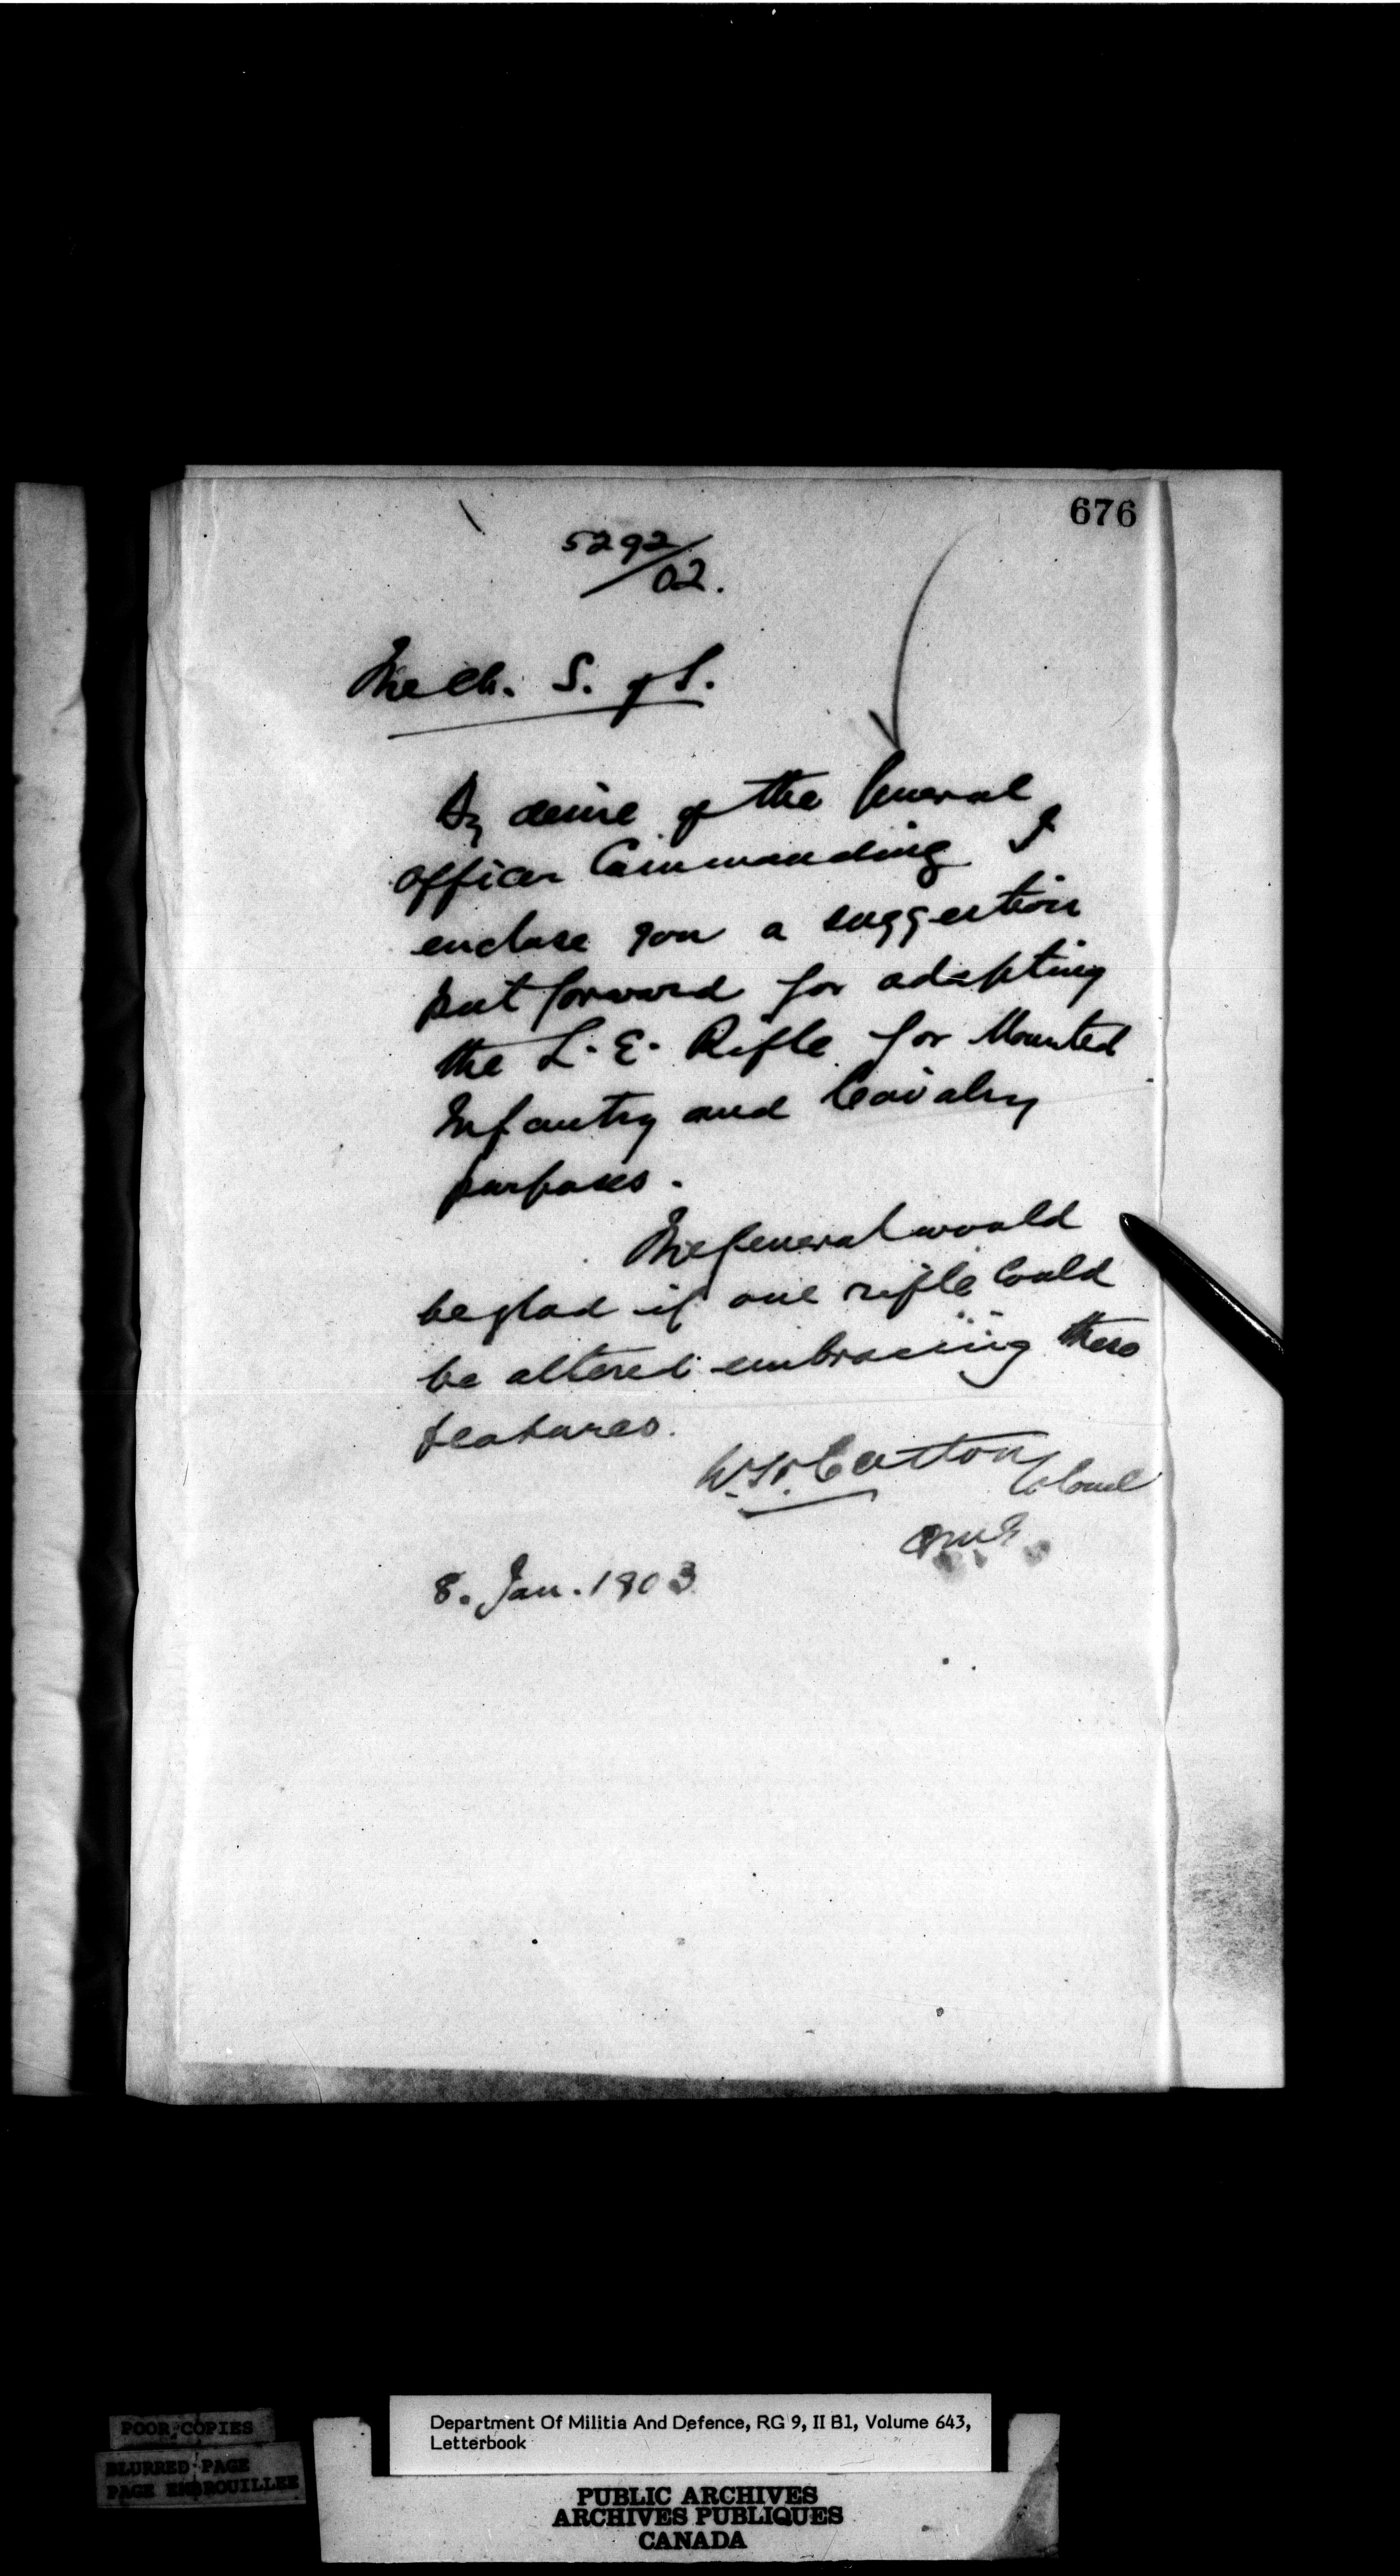 676
5292/02.
The Ch. S. of S.
By desire of the General
Officer Commanding I
enclose you a suggestion
put forward for adapting
the L. E. Rifle for Mounted
Infantry and Cavalry
purposes.
The General would
be glad if one rifle could
be altered embracing these
features.
W. H. Cotton Colonel
QMG.
8. Jan. 1903
POOR COPIES
BLURRED PAGE
PAGE EMBROUILLEE
Department Of Militia And Defence, RG 9, II B1, Volume 643,
Letterbook
PUBLIC ARCHIVES
ARCHIVES PUBLIQUES
CANADA